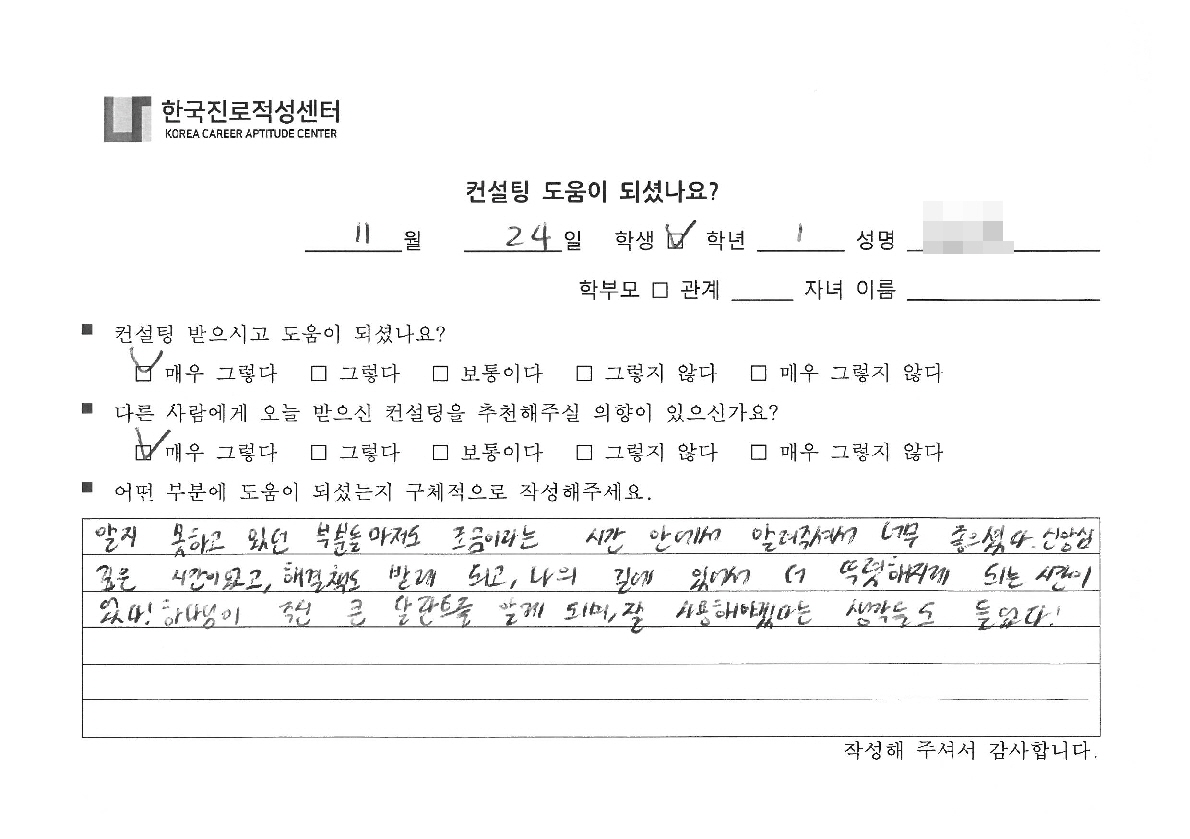 한국진로적성센터
KOREA CAREER APTITUDE CENTER
컨설팅 도움이 되셨나요?
11 월 24 일 학생 ☑ 학년 1 성명
학부모 □ 관계 자녀 이름
■ 컨설팅 받으시고 도움이 되셨나요?
☑ 매우 그렇다 □ 그렇다 □ 보통이다 □ 그렇지 않다 □ 매우 그렇지 않다
■ 다른 사람에게 오늘 받으신 컨설팅을 추천해주실 의향이 있으신가요?
☑ 매우 그렇다 □ 그렇다 □ 보통이다 □ 그렇지 않다 □ 매우 그렇지 않다
■ 어떤 부분에 도움이 되셨는지 구체적으로 작성해주세요.
알지 못하고 있던 부분들마저도 조금이라는 시간 안에서 알려주셔서 너무 좋으셨다. 신앙심
깊은 시간이었고, 해결책도 발견 되고, 나의 길에 있어서 더 뚜렷해지게 되는 시간이
었다! 하나님이 주신 큰 달란트를 알게 되며, 잘 사용해야겠다는 생각들도 들었다!
작성해 주셔서 감사합니다.